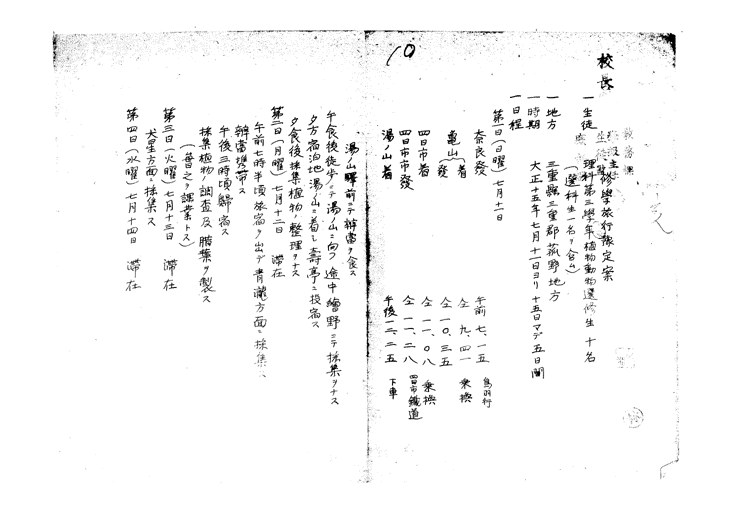 10
校長
教務課
生徒主
修學旅行豫定案
一生徒 理科第三學年植物動物選修生 十名
(選科生一名ヲ含ム)
一地方 三重縣三重郡菰野地方
一時期 大正十五年七月十一日ヨリ十五日マデ五日間
一日程
第一日(日曜)七月十一日
奈良發 午前 七、一五 鳥羽行
龜山(着 仝 九、四一 乗換
發 仝 一〇、三五
四日市着 仝 一一、〇八 乗換
四日市市發 仝 一一、二八 四日市鐵道
湯ノ山着 午後一二、二五 下車
湯ノ山驛前ニテ辨當ヲ食ス
午食後徒歩ニテ湯ノ山ニ向フ途中繪野ニテ採集ヲナス
夕方宿泊地湯ノ山ニ着シ壽亭ニ投宿ス
夕食後採集植物ノ整理ヲナス
第二日(月曜)七月十二日 滯在
午前七時半頃旅宿ヲ出デ青瀧方面ニ採集
辨當携帶
午後三時頃歸宿ス
採集植物ノ調査及腊葉ヲ製ス
(每夜之ヲ課業トス)
第三日(火曜)七月十三日 滯在
犬星方面ニ採集ス
第四日(水曜)七月十四日 滯在